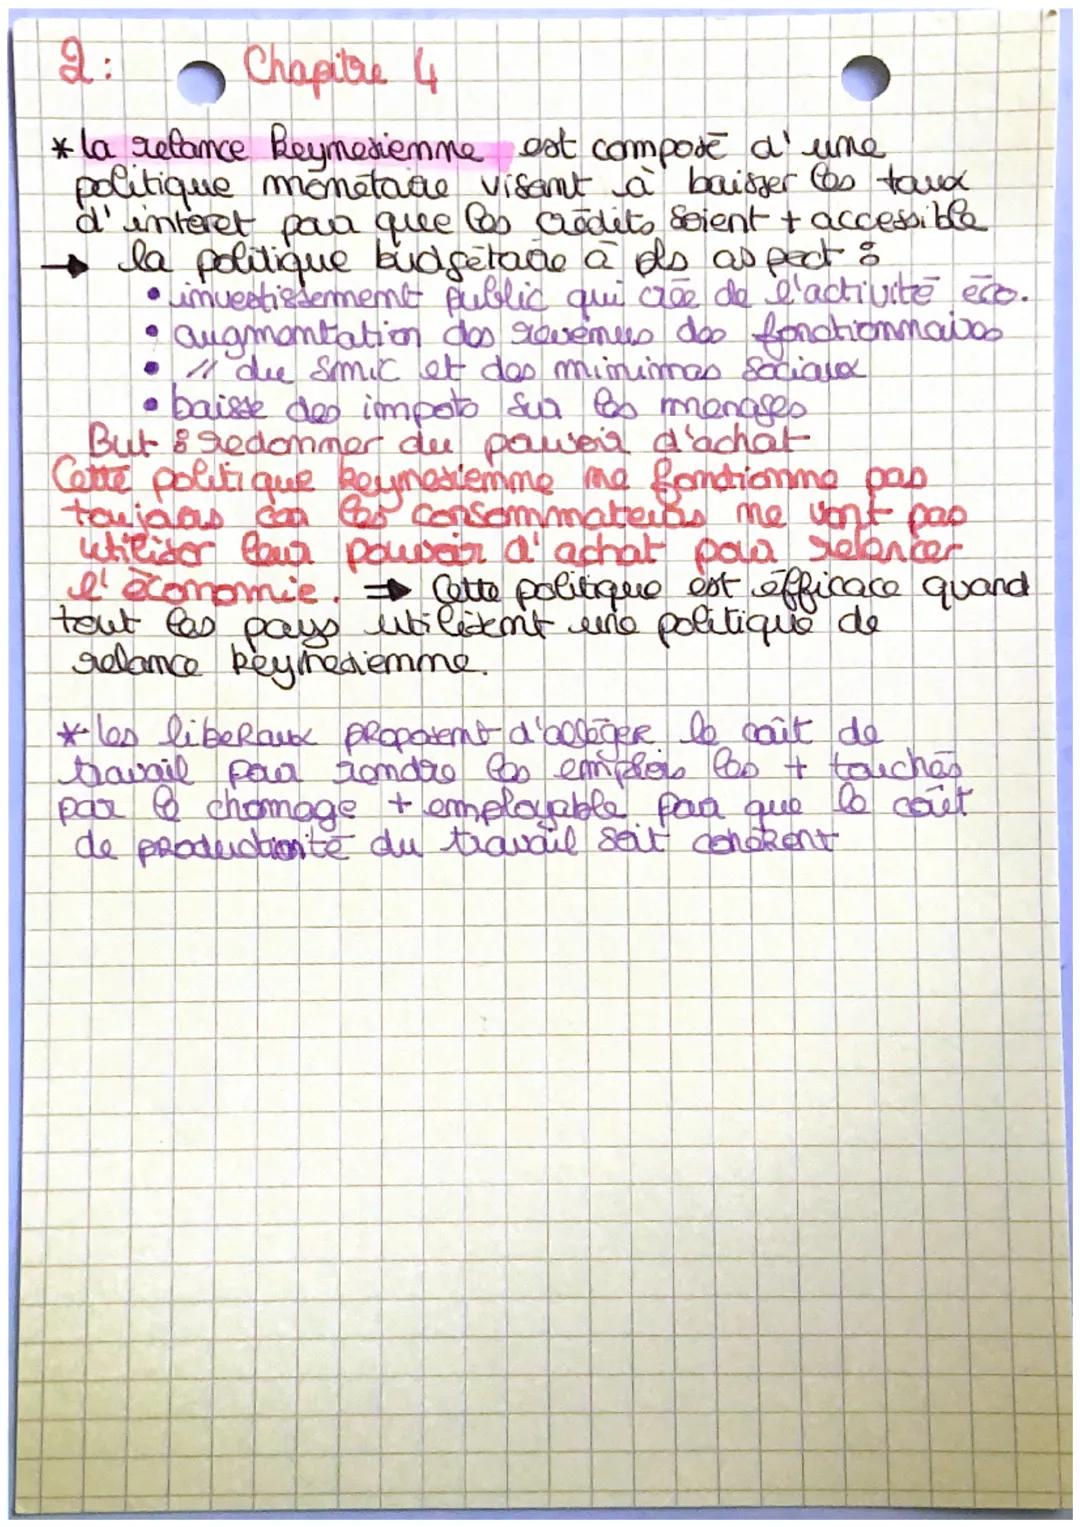 2: Chapitre 4
* la relance Keynesienne est composé d'une
politique monétaire visant à baisser les taux
d'interet pour que les crédits soient + accessible
→ la politique budgétaire à pls aspect :
• investissement public qui crée de l'activité éco.
• augmentation des revenus des fonctionnaires
• // du smic et des minimas sociaux
• baisse des impots sur les menages
But : redonner du pouvoir d'achat
Cette politique keynesienne ne fonctionne pas
toujours car les consommateurs ne vont pas
utiliser leur pouvoir d'achat pour relancer
l'économie. ⇒ Cette politique est éfficace quand
tout les pays utilisent une politique de
relance keynesienne.
* les liberaux proposent d'alléger le coût de
travail pour rendre les emplois les + touchés
par le chomage + employable pour que le coût
de productivité du travail soit cohérent